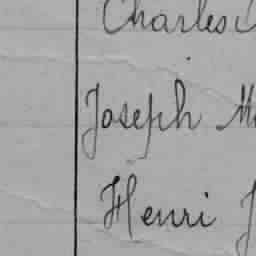 Charles
Joseph
Henri